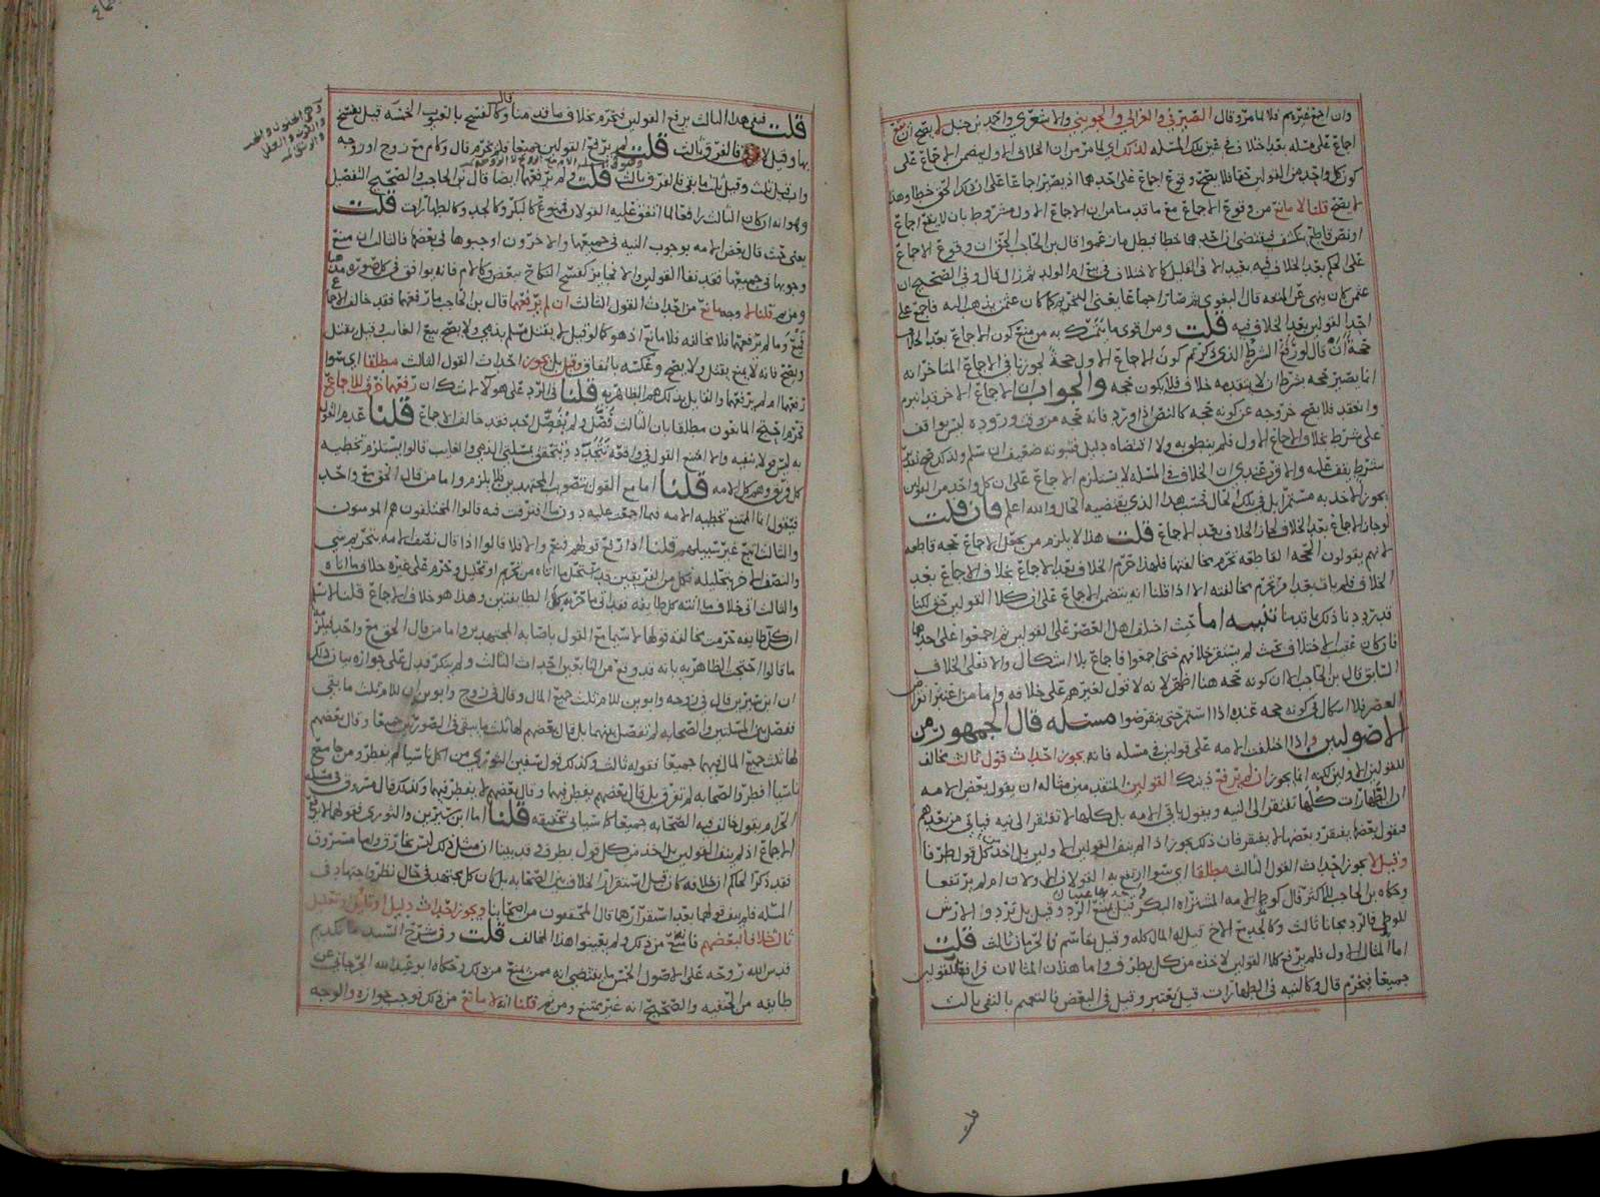 وان اجمع غيرهم فلا لما مر وقال الصيرفي والغزالي والجويني والاشعري واحمد بن حنبل لا يصح ان يقع
اجماع على مسئله بعد خلاف في عين تلك المسئله لذلك اي لما مر من ان الخلاف الاول يتضمن الاجماع على
كون كل واحد من القولين حقا فلا يصح وقوع اجماع على احدهما اذ يصير اجماعا على ان ذلك الحق خطا وهذا
لا يصح قلنا لا مانع من وقوع الاجماع مع ما قدمنا من ان الاجماع الاول مشروط بان لا يقع اجماع
او نص قاطع يكشف فيقتضي ان احدهما خطا فبطل ما زعموا قال بن الحاجب الحق ان وقوع الاجماع
على الحكم بعد الخلاف فيه بعيد الا في القليل كالاختلاف في بيع ام الولد ثم زال قال وفي الصحيح ان
عثمان كان ينهى عن المتعه قال البغوي ثم صار اجماعا
احد القولين بعد الخلاف فيه قلت ومن اقوى ما يتمسك به من منع كون الاجماع بعد الخلاف
حجة ان قال لو رفع الشرط الذي ذكرتم كون الاجماع الاول حجة لجوزنا في الاجماع المتاخر انه
انما يصير حجه بشرط ان لا يتقدمه خلاف فلا يكون حجه والجواب ان الاجماع الاخر قد ابرم
وانعقد فلا يصح خروجه عن كونه حجه كالنص اذا ورد فانه حجه من وقت وروده ليس بواقف
على شرط بخلاف الاجماع الاول فلم ينطو به ولا اقتضاه دليل فثبوته ضعيف ان سلم ولذلك
بشرط يقف عليه والاقرب عندي ان الخلاف في المسئله لا يستلزم الاجماع على ان كل واحد من القولين
يجوز الاخذ به مستمرا بل في تلك الحال حسب هذا الذي يقتضيه الحال والله اعلم فان قلت
لو جاز الاجماع بعد الخلاف لجاز الخلاف بعد الاجماع قلت هذا لا يلزم من يجعل الاجماع حجه قاطعه
لانهم يقولون الحجه القاطعه تحرم مخالفتها فلهذا حرم الخلاف بعد الاجماع بخلاف الاجماع بعد
الخلاف فلم يات بعد امر تحرم مخالفته الا اذا قلنا انه يتضمن الاجماع على ان كلا القولين حق لكنا
قد رددنا ذلك بما قدمنا تنبيه اما حيث اختلف اهل العصر على القولين ثم اجمعوا على احدهما
فان كان عقيب الاختلاف بحيث لم يستقر خلافهم حتى اجمعوا فاجماع بلا اشكال والا فعلى الخلاف
السابق قال بن الحاجب الا ان كونه حجه هنا اظهر لانه لا قول لغيرهم على خلافه واما من اعتبر انقراض
العصر فلا اشكال في كونه حجه عنده اذا استمر حتى ينقرضوا مسئله قال الجمهور من
الاصوليين واذا اختلفت الامه على قولين في مسئله فانه يجوز احداث قول ثالث مخالف
للقولين الاولين لكنه انما يجوز ان لم يرفع ذينك القولين المتقدمين مثاله ان يقول بعض الامه
ان الطهارات كلها تفتقر الى النيه ويقول باقي الامه بل كلها لا تفتقر الى نيه فياتي من بعدهم
فيقول بعضها يفتقر وبعضها لا يفتقر فان ذلك يجوز اذ لم ينف القولين الاولين بل اخذ من كل قول طرفا
وقيل لا يجوز احداث القول الثالث مطلقا اي سوا ارتفع به القولان الاولان ام لم يرتفعا
وحكاه بن الحاجب للاكثر قال كوطي الامه المشتراه البكر قيل يمنع الرد وقيل بل ترد والارش
للوطي فالرد مجانا ثالث وكالجد مع الاخ قيل له المال كله وقيل يقاسم فالحرمان ثالث قلت
اما المثال الاول فلم يرفع كلا القولين لاخذه من كل بطرف واما هذان المثالان فرافعان للقولين
جميعا فيحرم قال وكالنيه في الطهارات قيل يعتبر وقيل في البعض فالتعميم بالنفي ثالث
قلت ففي هذا الثالث يرفع القولين فيحرم بخلاف ما قدمنا قال وكالفسخ بالعيوب الخمسه قيل يفسخ
بها وقيل لا فالفرق ثالث قلت لم يرفع القولين جميعا فلم يحرم قال وكام مع زوج او زوجه
واب قيل ثلث وقيل ثلث ما بقي فالفرق ثالث قلت ولم يرفعهما ايضا قال بن الحاجب والصحيح التفصيل
وهو انه ان كان الثالث يرافعا لما اتفق عليه القولان فممنوع كالبكر وكالجد وكالطهارات قلت
يعني حيث قال بعض الامه بوجوب النيه في جميعها والاخرون اوجبوها في بعضها فالثالث ان منع
وجوبها في جميعها فقد نفا القولين والا فجايز كفسخ النكاح ببعض وكالام فانه يوافق في كل صوره مذهبا
ومن ثم قلنا لا وجه مانع من احداث القول الثالث ان لم يرفعهما قال بن الحاجب ما رفعهما فقد خالف الاجماع
فمنع وما لم يرفعهما فلا مخالفه فلا مانع اذ هو كما لو قيل لا يقتل مسلم بذمي ولا يصح بيع الغايب وقيل يقتل
ويصح فانه لا يمنع يقتل ولا يصح وعكسه باتفاق وقيل بل يجوز احداث القول الثالث مطلقا اي سوا
رفعهما ام لم يرفعهما والقايل بذلك هم الظاهريه قلنا في الرد على هولا لا شك ان رفعهما خرق للاجماع
تحرم احتج المانعون مطلقا بان الثالث فصل ولم يفصل احد فقد خالف الاجماع قلنا عدم القول
به ليس قولا بنفيه والا امتنع القول في واقعة تتجدد وتتحقق بمسئلتي الذمي والغايب قالوا يستلزم تخطيه
كل فريق وهم كل الامه قلنا اما مع القول بتصويب المجتهدين فلا يلزم واما من قال الحق مع واحد
فيقول انما الممتنع تخطيه الامه فيما اجمعت عليه دون ما افترقت فيه قالوا المختلفون هم المومنون
والثالث اتبع غير سبيلهم قلنا اذا رفع قوليهم فنعم والا فلا قالوا اذا قال نصف الامه بتحريم شي
والنصف الاخر بتحليله فكل من الفريقين
والثالث اتى خلاف ما اتته كل طايفه فقد اتى ما حرمه كل الطايفتين وهذا هو خلاف الاجماع قلنا لا نسلم
ان كل طايفه حرمت مخالفه قولها لا سيما مع القول باصابه المجتهدين واما من قال الحق مع واحد فيلزم
ما قالوا احتجت الظاهريه بانه قد وقع من التابعين احداث الثالث ولم ينكر فدل على جوازه بيان ذلك
ان ابن سيرين قال في زوجه وابوين للام ثلث جميع المال وقال في زوج وابوين ان للام ثلث ما بقي
ففصل بين المسئلتين والصحابه لم تفصل بينهما بل قال بعضهم لها ثلث ما يبقى في الصورتين جميعا وقال بعضهم
لها ثلث جميع المال فيهما جميعا فقوله ثالث وكذلك قول سفين الثوري من اكل ناسيا لم يفطر ومن جامع
ناسيا افطر والصحابه لم تفرق بل قال بعضهم يفطر فيهما وقال بعضهم لا يفطر فيهما وكذلك قال مسروق في مسئله
الحرام بقول خالف فيه الصحابه جميعا كما سياتي تحقيقه قلنا اما ابن سيرين والثوري فقولهما لا يرفع
الاجماع اذ لم ينف القولين بل اخذ من كل قول بطرف وقد بينا ان مثل ذلك ليس بخارق واما مسروق
فقد ذكر الحاكم ان خلافه كان قبل استقرار الخلاف بين الصحابه بل كان كل مجتهد في حال نظر واجتهاد في
المسئله فلم ينف قولهما بعد استقرارهما قال المحققون من اصحابنا ويجوز احداث دليل او تاويل وتعليل
ثالث خلافا لبعضهم فانه منع من ذلك ولم يعينوا هذا المخالف قلت وفي شرح السيد مانكديم
قدس الله روحه على الاصول الخمس ما يقتضي انه ممن منع من ذلك وحكاه ابو عبد الله الجرجاني عن
طايفه من الحنفيه والصحيح انه غير ممتنع ومن ثم قلنا انه لا مانع من ذلك فوجب جوازه والوجه